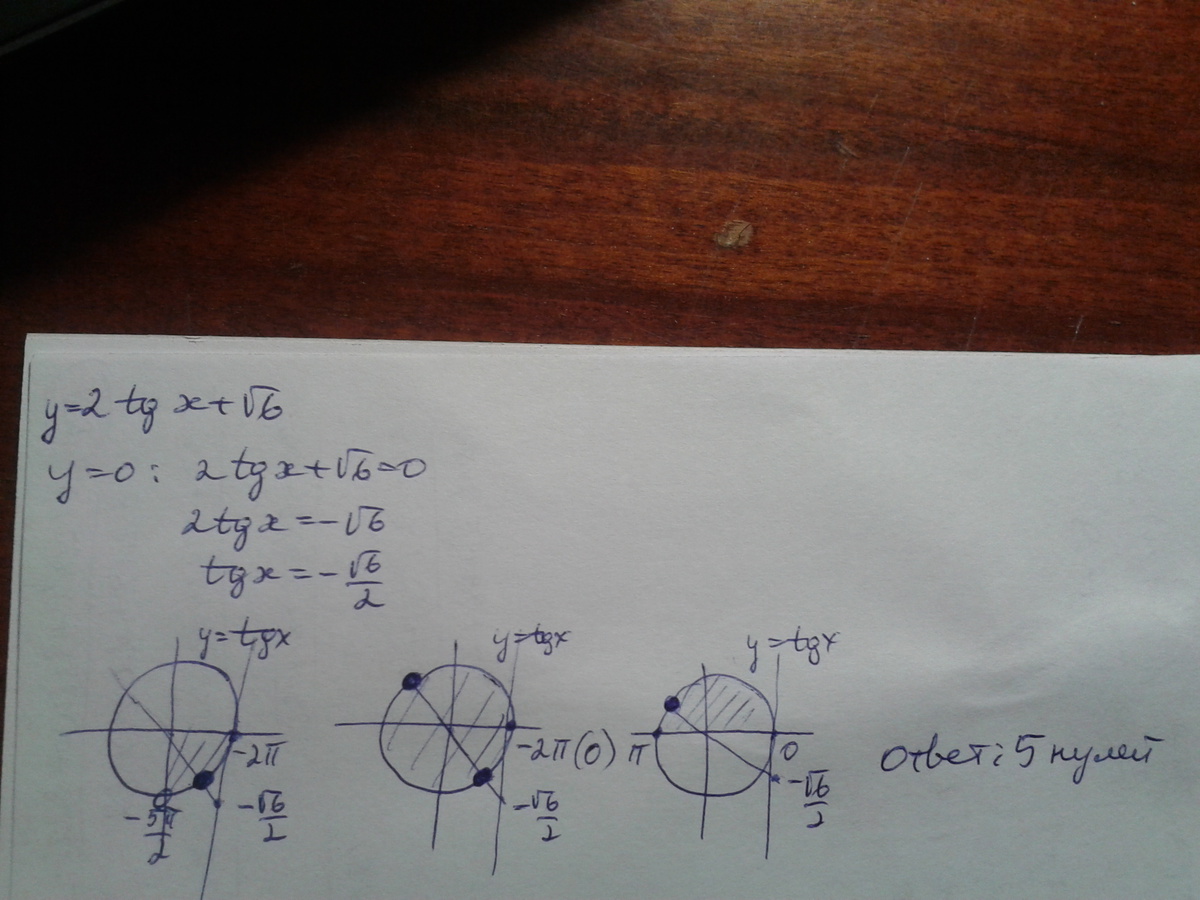 y=2 tg x+√6
y=0: 2tgx+√6=0
2tgx=-√6
tgx=-√6/2
y=tgx
-2π
-5π/2
-√6/2
y=tgx
-2π(0)
-√6/2
y=tgx
π
0
-√6/2
ответ: 5 нулей